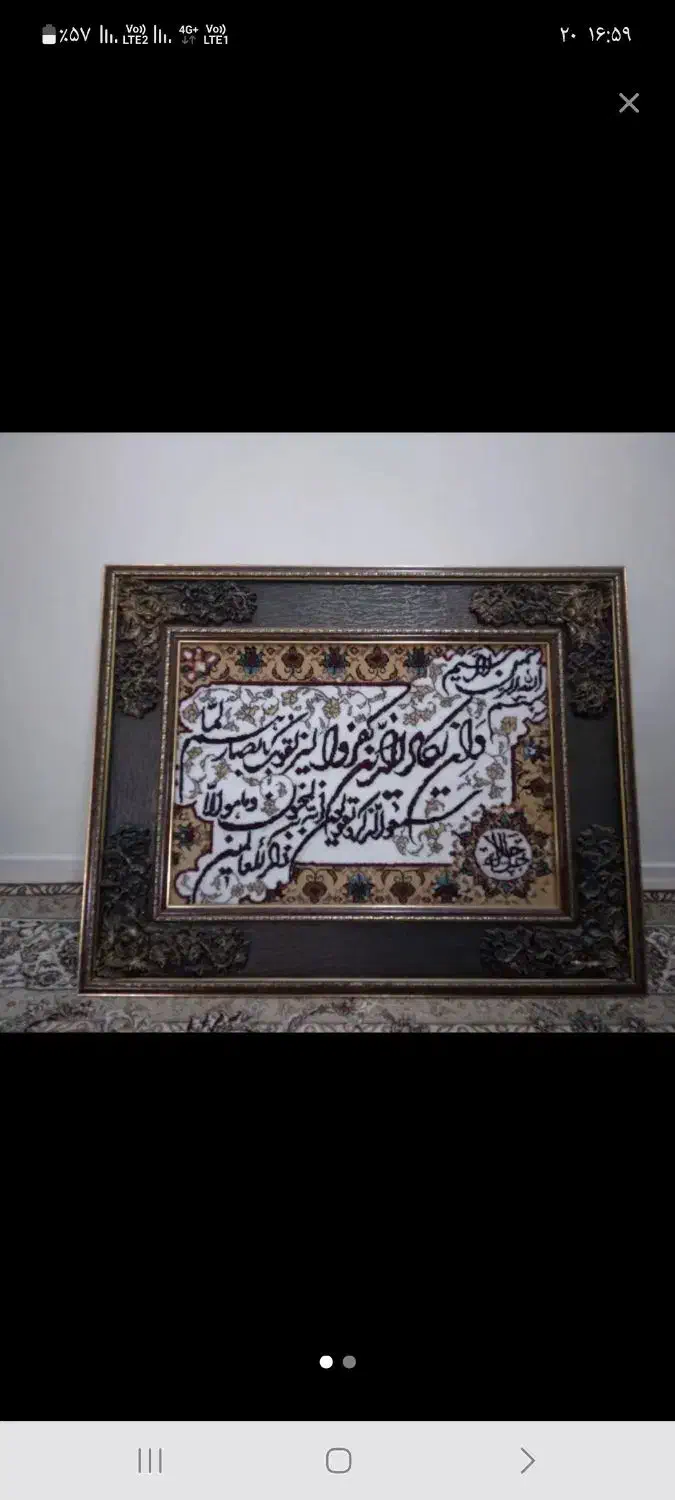 ٪۵۷ Vo)) LTE2 4G+ Vo)) LTE1
۲۰ ۱۶:۵۹
بسم الله الرحمن الرحیم
وان یکاد الذین کفروا لیزلقونک بابصارهم لما
سمعوا الذکر و یقولون انه لمجنون و ما هو الا
ذکر للعالمین
جل جلاله